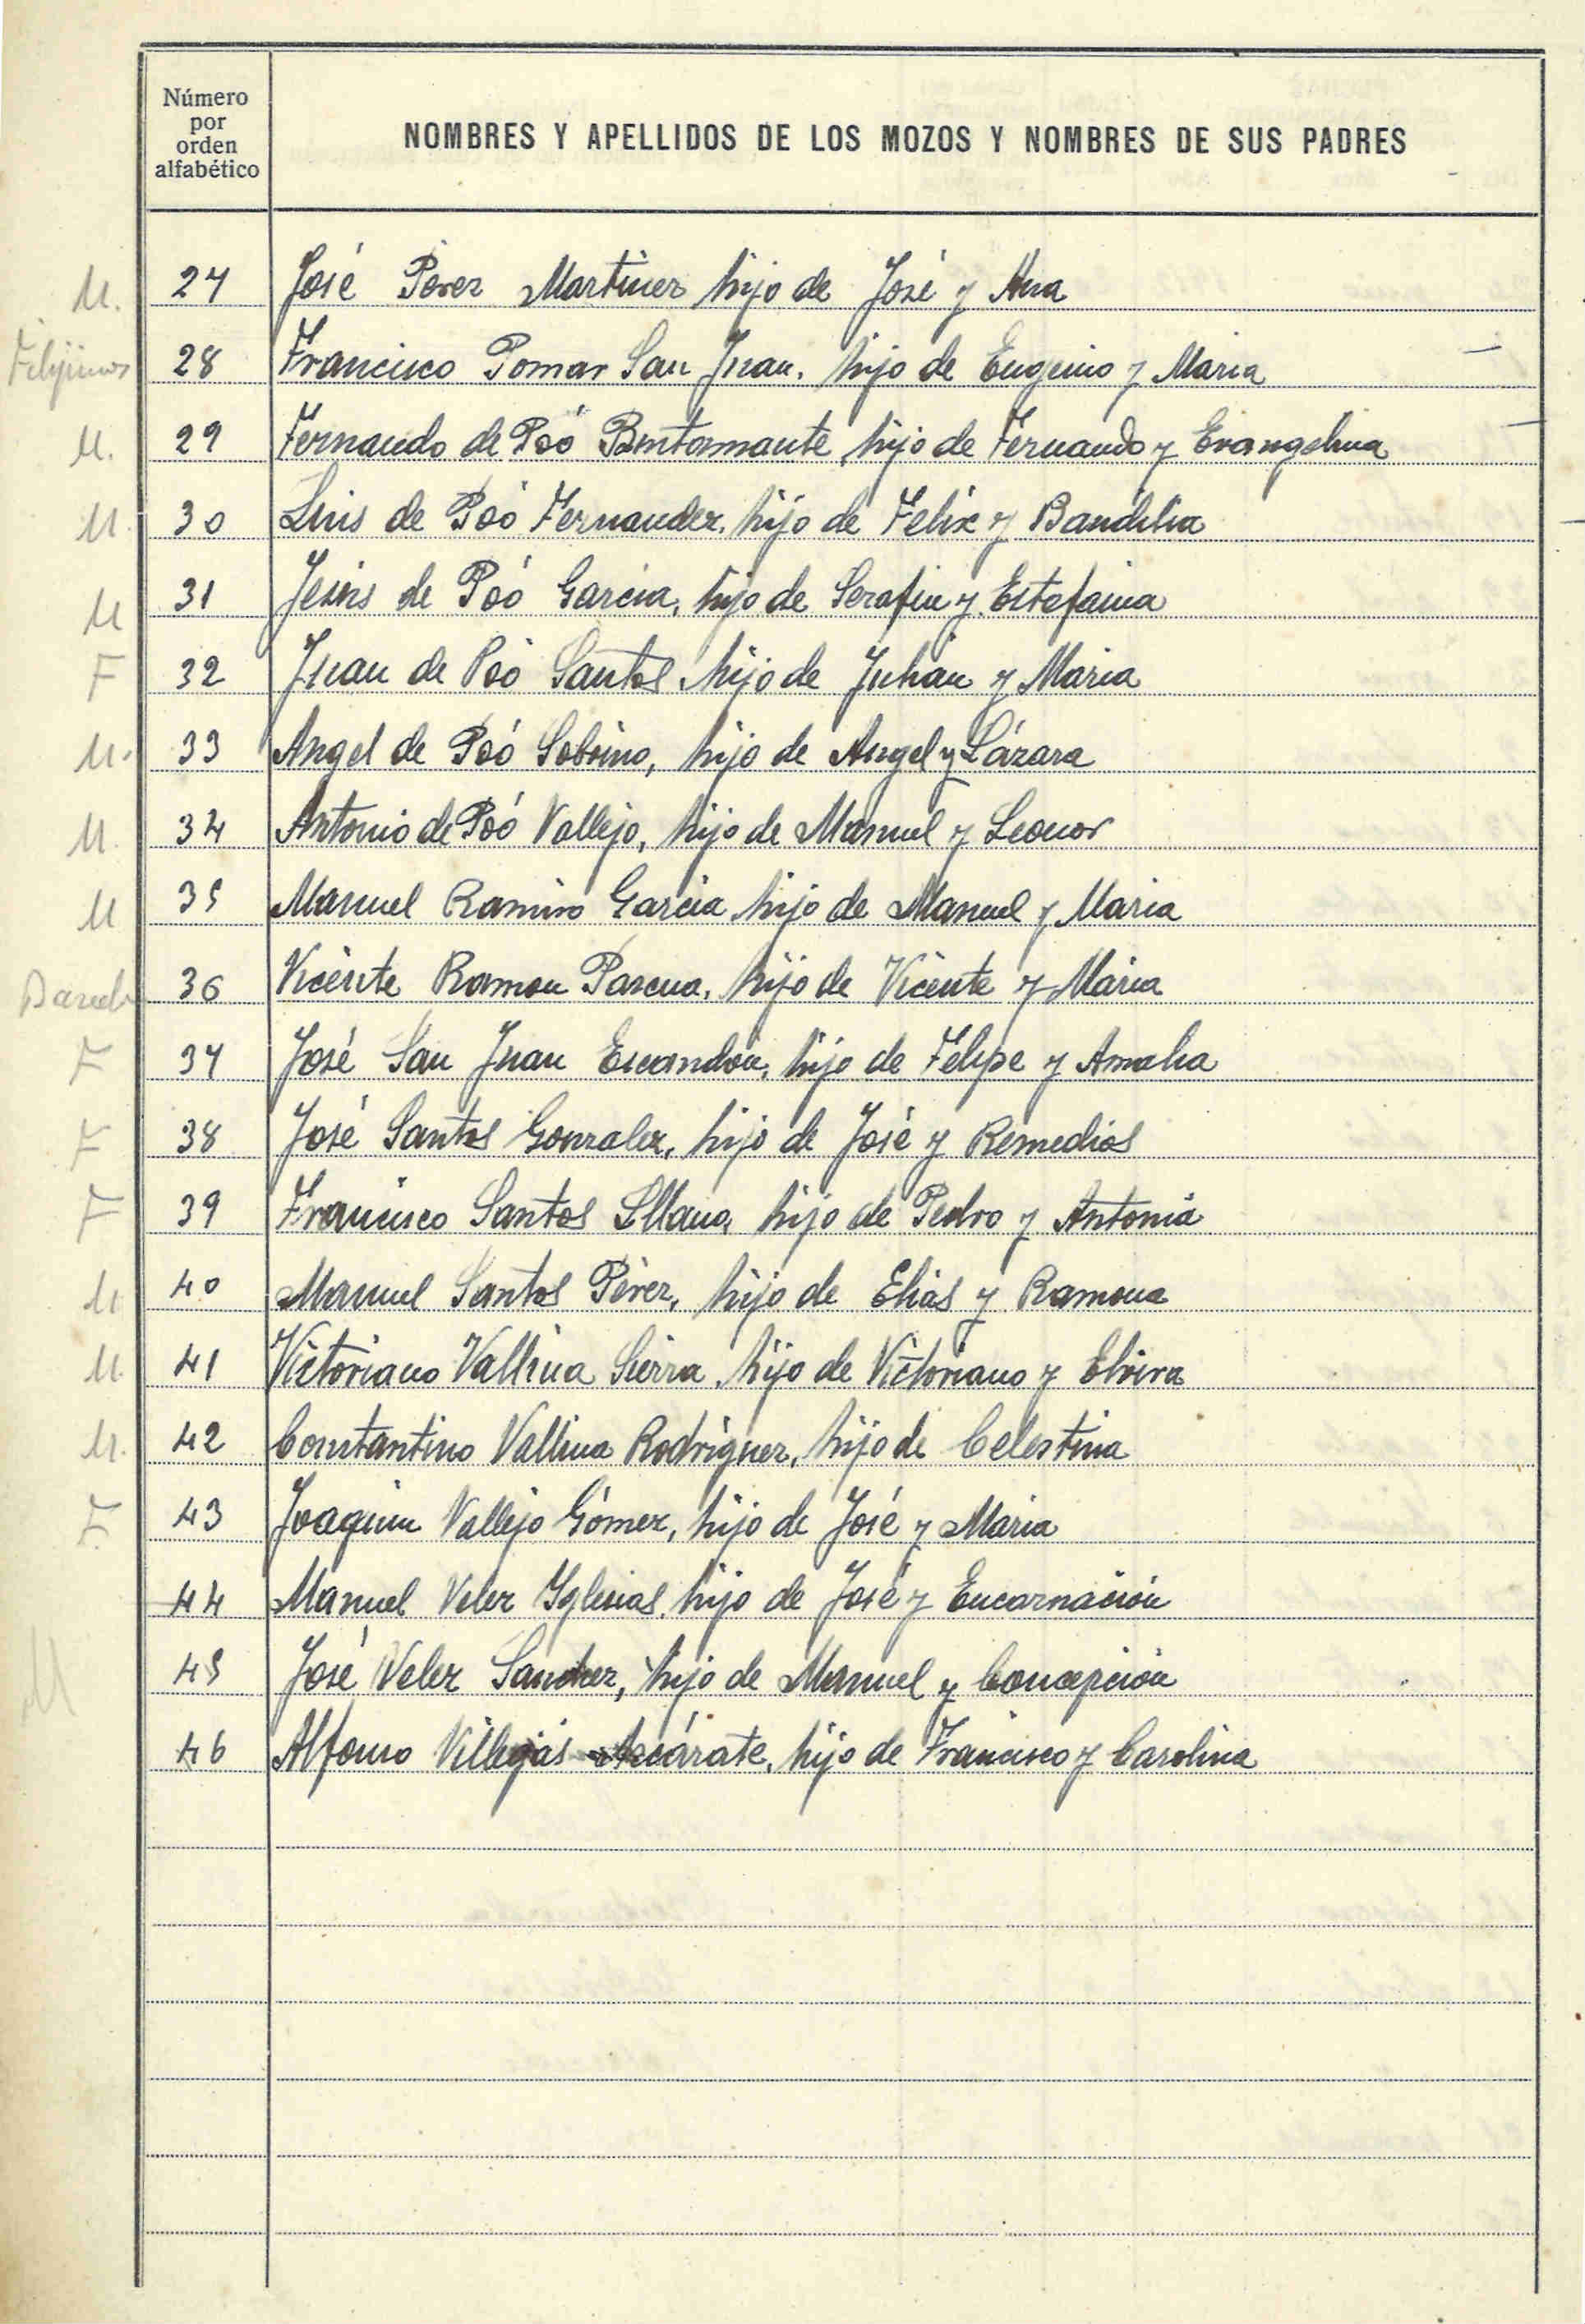 Número
por
orden
alfabético
NOMBRES Y APELLIDOS DE LOS MOZOS Y NOMBRES DE SUS PADRES
M. 27 José Perez Martinez hijo de José y Ana
28 Francisco Pomar San Juan, hijo de Eugenio y Maria
M. 29 Fernando de Poó hijo de Fernando y Evangelina
M. 30 Luis de Poó Fernandez, hijo de Felix y Bandilia
M 31 Jesús de Poó Garcia, hijo de Serafin y Estefania
F 32 Juan de Poó Santos, hijo de Julian y Maria
M. 33 Angel de Poó Sobrino, hijo de Angel y Lázara
M. 34 Antonio de Poó Vallejo, hijo de Manuel y Leonor
M 35 Manuel Ramiro Garcia hijo de Manuel y Maria
36 Vicente Ramon Pascua, hijo de Vicente y Maria
F 37 José San Juan Escandón, hijo de Felipe y Amalia
F 38 José Santos Gonzalez, hijo de José y Remedios
F 39 Francisco Santos Lllano, hijo de Pedro y Antonia
M 40 Manuel Santos Pérez, hijo de Elias y Ramona
M. 41 Victoriano Vallina Sierra, hijo de Victoriano y Elvira
M. 42 Constantino Vallina Rodriguez, hijo de Celestina
F. 43 Joaquin Vallejo Gómez, hijo de José y Maria
44 Manuel Velez Yglesias, hijo de José y Encarnación
M 45 José Velez Sanchez, hijo de Manuel y Concepción
46 Alfonso Villegas Azcárate, hijo de Francisco y Carolina